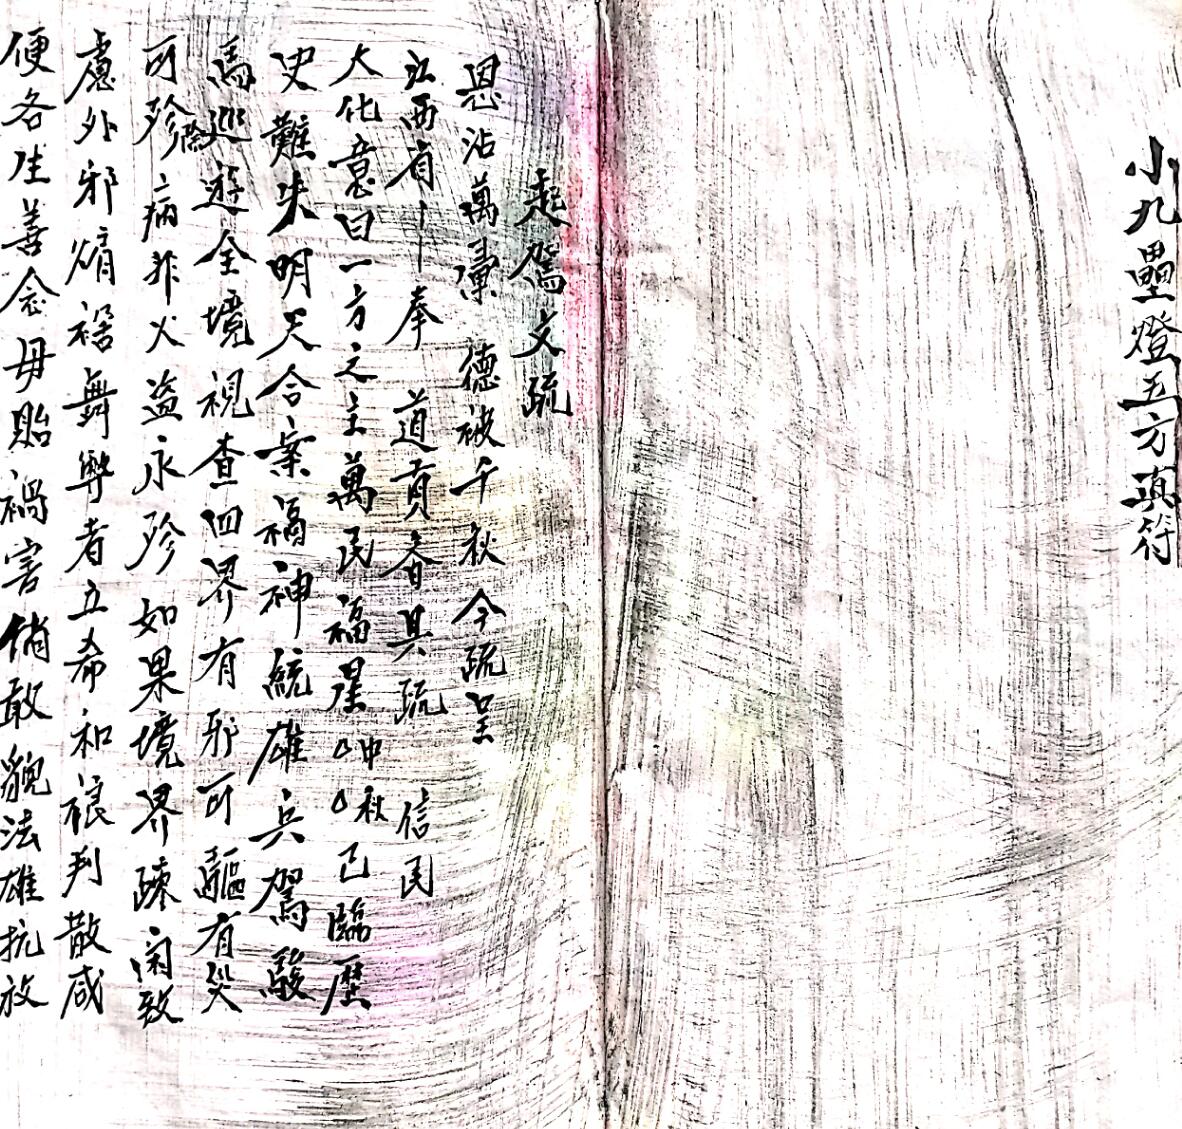 小九壘燈五方真符
起駕文疏
恩沾萬彚 德被千秋 今疏呈
江西省 奉 道貢香具疏 信民
大化意曰一方之主萬民福星 中秋 已臨歷
史難失明天合案福神統雄兵駕駿
馬巡遊全境視查四界有邪可驅有災
可殄 病非火盜永殄如果境界疎 致
慮外邪 舞弊者立希和 判散咸
便各生善念毋貽禍害倘敢藐法雄抗放